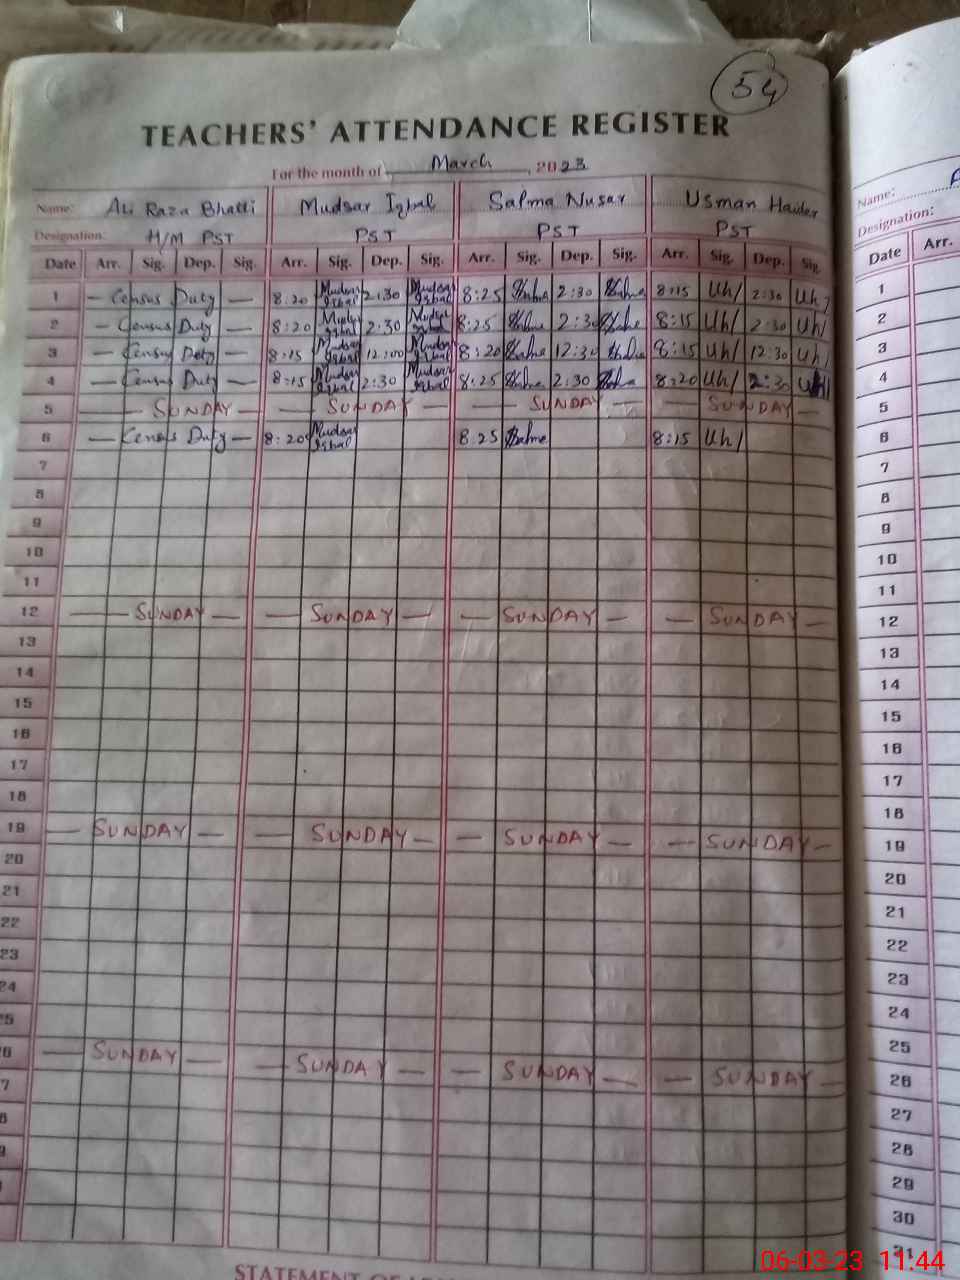 54
TEACHERS' ATTENDANCE REGISTER
For the month of March, 2023
Name: Ali Raza Bhatti Mudsar Iqbal Salma Nusar Usman Haider Name:
Designation: H/M PST PST PST PST Designation:
Date Arr. Sig. Dep. Sig. Arr. Sig. Dep. Sig. Arr. Sig. Dep. Sig. Arr. Sig. Dep. Sig. Date Arr.
1 — Census Duty — 8:20 Mudsar Iqbal 2:30 Mudsar Iqbal 8:25 Salma 2:30 Salma 8:15 Uh/ 2:30 Uh/ 1
2 — Census Duty — 8:20 Mudsar Iqbal 2:30 Mudsar Iqbal 8:25 Salma 2:30 Salma 8:15 Uh/ 2:30 Uh/ 2
3 — Census Duty — 8:15 Mudsar Iqbal 12:00 Mudsar Iqbal 8:20 Salma 12:30 Salma 8:15 Uh/ 12:30 Uh/ 3
4 — Census Duty — 8:15 Mudsar Iqbal 2:30 Mudsar Iqbal 8:25 Salma 2:30 Salma 8:20 Uh/ 2:30 Uh/ 4
5 — SUNDAY — — SUNDAY — — SUNDAY — — SUNDAY — 5
6 — Census Duty — 8:20 Mudsar Iqbal 8:25 Salma 8:15 Uh/ 6
7 7
8 8
9 9
10 10
11 11
12 — SUNDAY — — SUNDAY — — SUNDAY — — SUNDAY — 12
13 13
14 14
15 15
16 16
17 17
18 18
19 — SUNDAY — — SUNDAY — — SUNDAY — — SUNDAY — 19
20 20
21 21
22 22
23 23
24 24
25 25
26 — SUNDAY — — SUNDAY — — SUNDAY — — SUNDAY — 26
27 27
28 28
29 29
30
31
STATEMENT OF
06-03-23 11:44